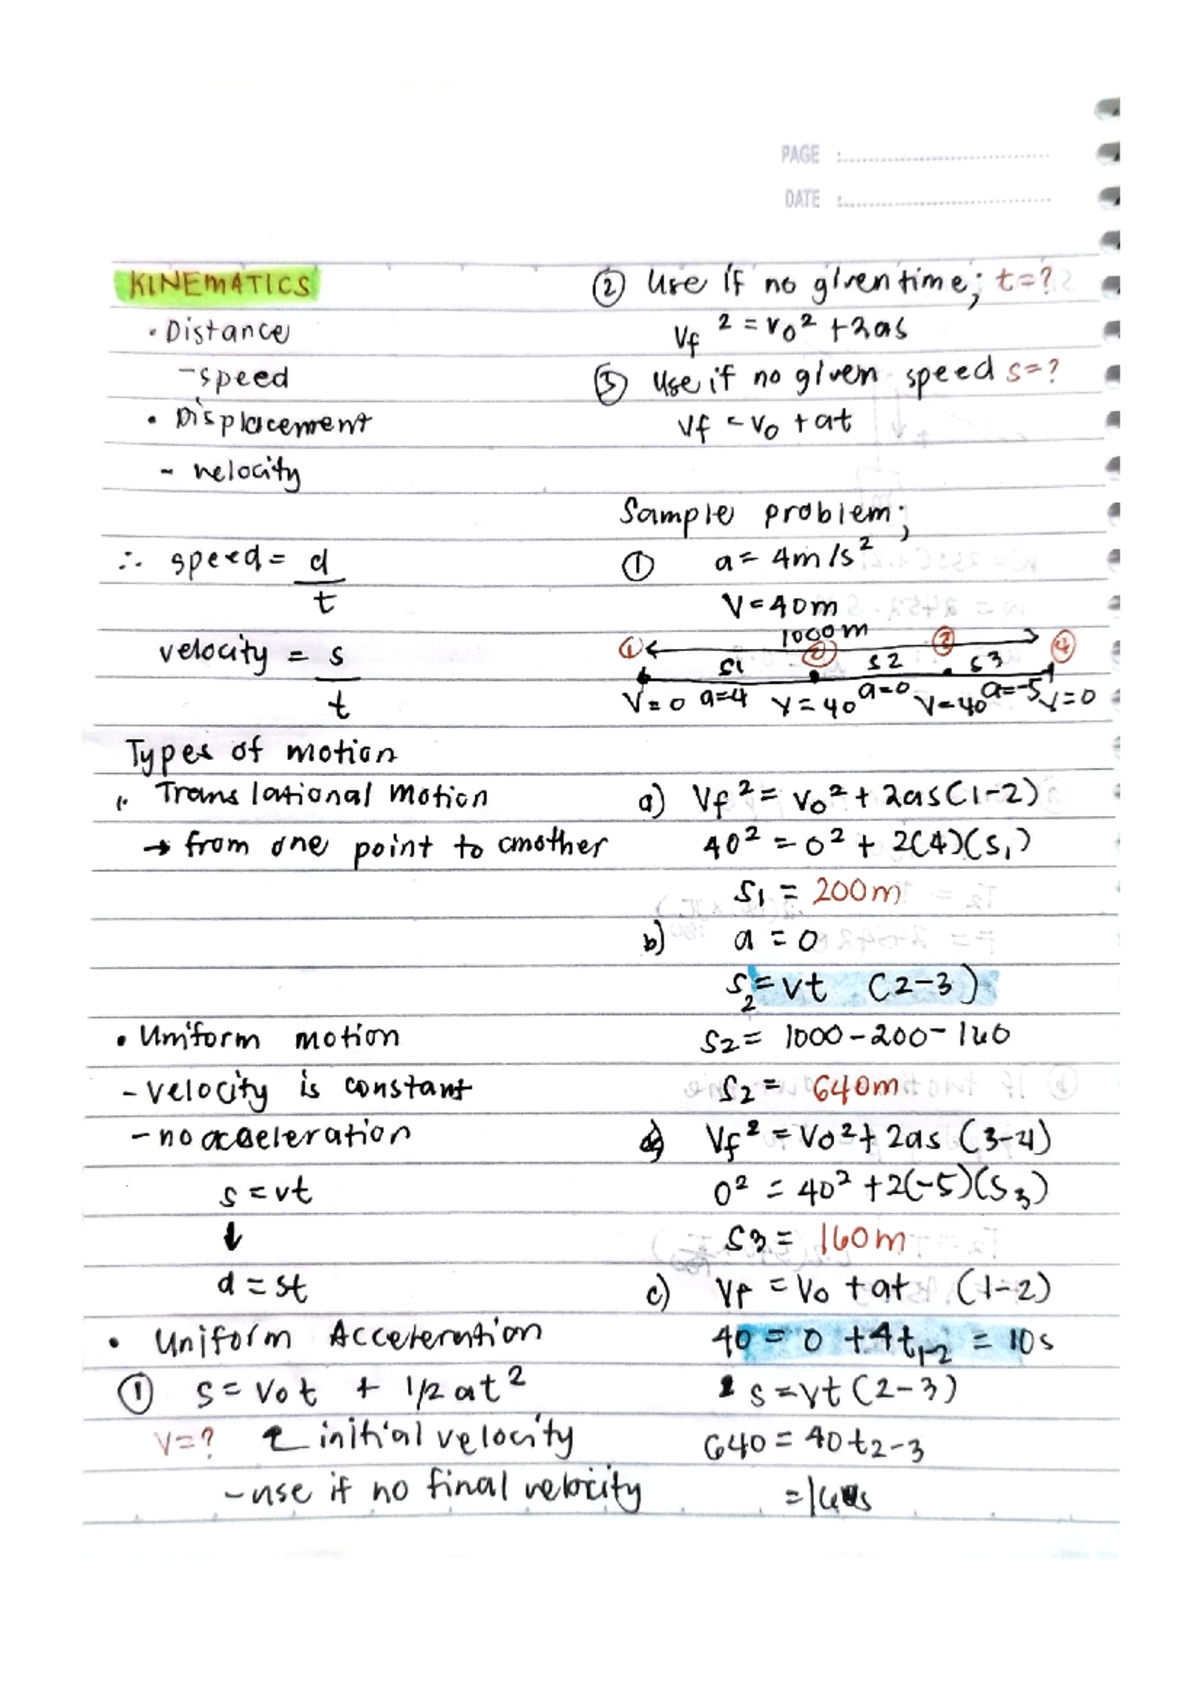 PAGE :
DATE :
KINEMATICS
• Distance
- speed
• Displacement
- velocity
∴ speed = d
t
velocity = s
t
Types of motion
1. Translational motion
→ from one point to another
• Uniform motion
- velocity is constant
- no acceleration
s = vt
↓
d = st
• Uniform Acceleration
① s = Vot + 1/2 at²
v=? initial velocity
- use if no final velocity
② Use if no given time; t=?
Vf² = vo² + 2as
③ Use if no given speed s=?
Vf = Vo + at
Sample problem;
① a = 4m/s²
V = 40m
1000m
① ② ③ ④
s1 s2 s3
V=0 a=4 V=40 a=0 V=40 a=-5 V=0
a) Vf² = Vo² + 2as (1-2)
40² = 0² + 2(4)(s1)
s1 = 200m
b) a = 0
s2 = vt (2-3)
s2 = 1000-200-160
s2 = 640m
Vf² = Vo² + 2as (3-4)
0² = 40² + 2(-5)(s3)
s3 = 160m
c) Vf = Vo + at (1-2)
40 = 0 + 4t1-2 = 10s
s = vt (2-3)
640 = 40t2-3
=16s